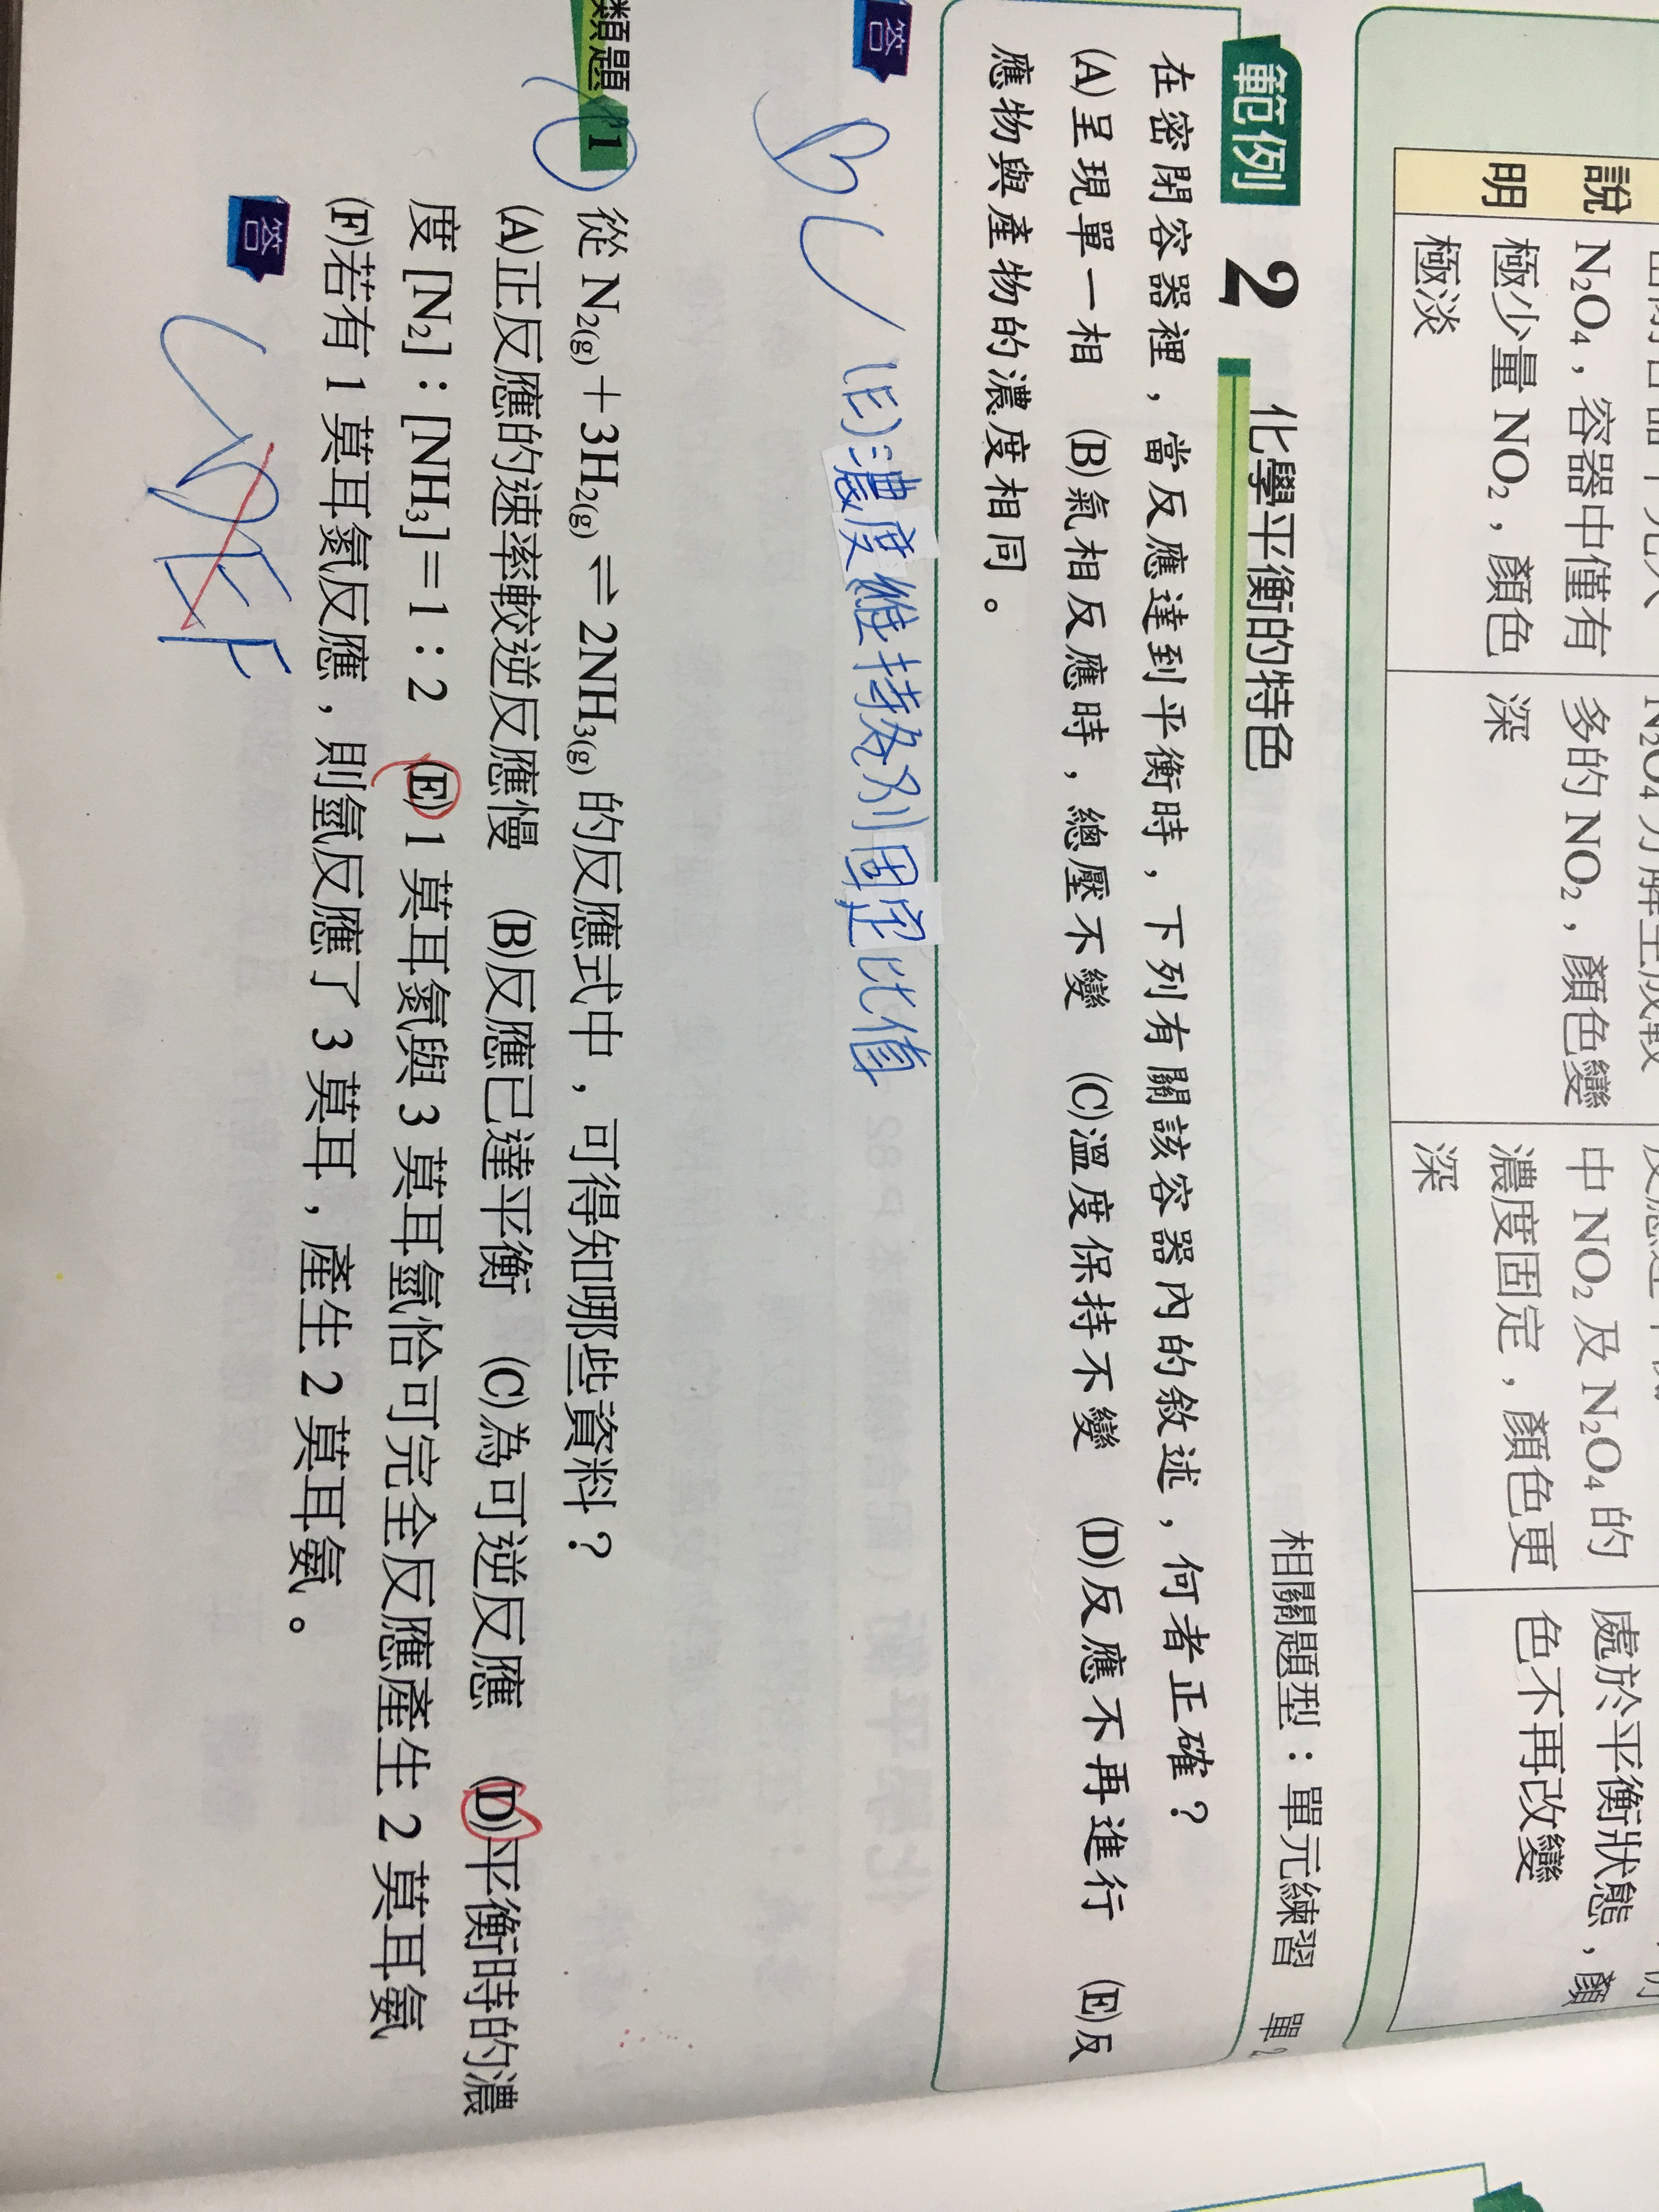 說明
N₂O₄，容器中僅有
極少量 NO₂，顏色
極淡
多的 NO₂，顏色變
深
中 NO₂ 及 N₂O₄ 的
濃度固定，顏色更
深
處於平衡狀態，顏
色不再改變
範例 2 化學平衡的特色 相關題型：單元練習 單 2
在密閉容器裡，當反應達到平衡時，下列有關該容器內的敘述，何者正確？
(A)呈現單一相 (B)氣相反應時，總壓不變 (C)溫度保持不變 (D)反應不再進行 (E)反
應物與產物的濃度相同。
答 (E)：濃度維持各別固定比值
類題 1 從 N₂(g)＋3H₂(g) ⇌ 2NH₃(g) 的反應式中，可得知哪些資料？
(A)正反應的速率較逆反應慢 (B)反應已達平衡 (C)為可逆反應 (D)平衡時的濃
度 [N₂]：[NH₃]＝1：2 (E) 1 莫耳氮與 3 莫耳氫恰可完全反應產生 2 莫耳氨
(F)若有 1 莫耳氮反應，則氫反應了 3 莫耳，產生 2 莫耳氨。
答 CDEF